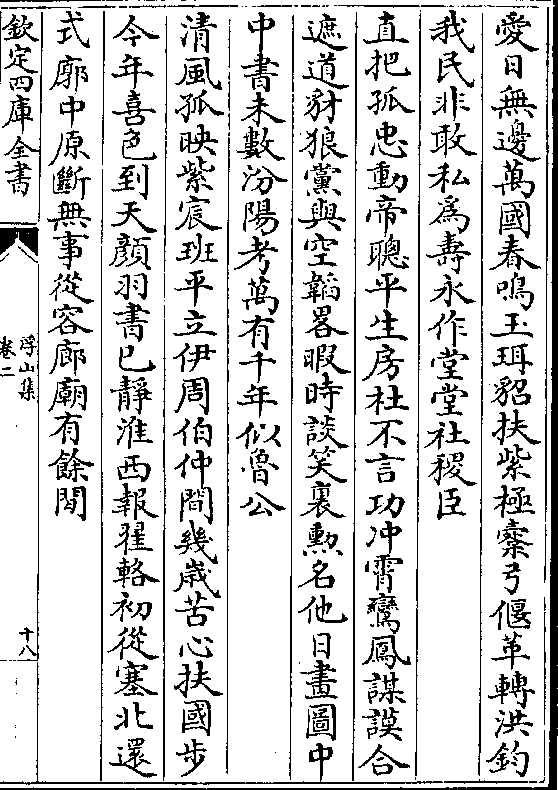 愛日無邊萬國春鳴玉珥貂扶紫極櫜弓偃革轉洪鈞
我民非敢私爲壽永作堂堂社稷臣
直把孤忠動帝聰平生房杜不言功冲霄鸞鳳謀謨合
遮道豺狼黨與空韜畧暇時談笑裏勲名他日畫圖中
中書未數汾陽考萬有千年似魯公
清風孤映紫宸班平立伊周伯仲間幾歳苦心扶國步
今年喜色到天顔羽書已靜淮西報翟輅初從塞北還
式廓中原斷無事從容廊廟有餘閒
欽定四庫全書
浮山集
卷二
十八